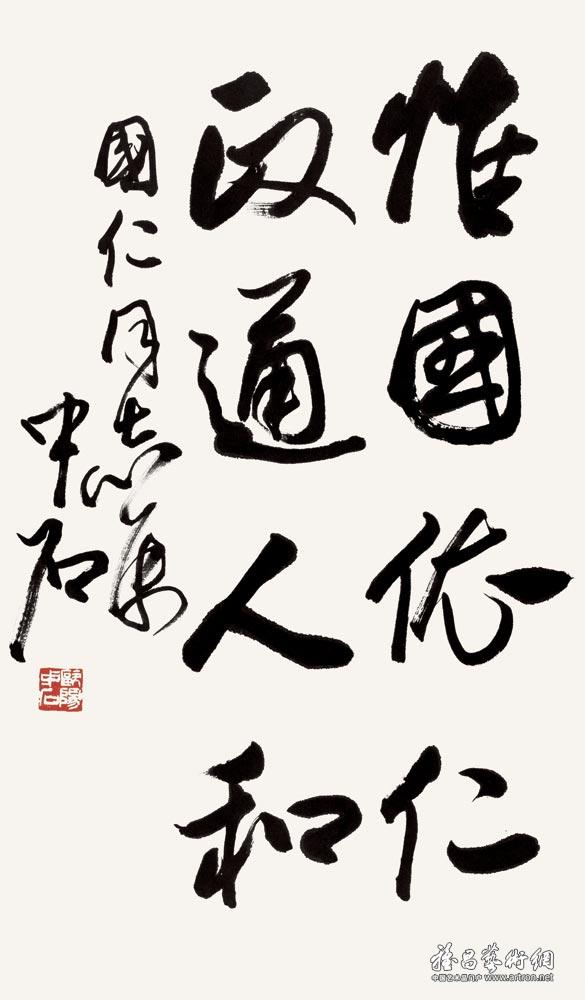 惟國依仁
政通人和
國仁同志属
中石
歐陽中石
雅昌藝術網
中国艺术品门户 www.artron.net